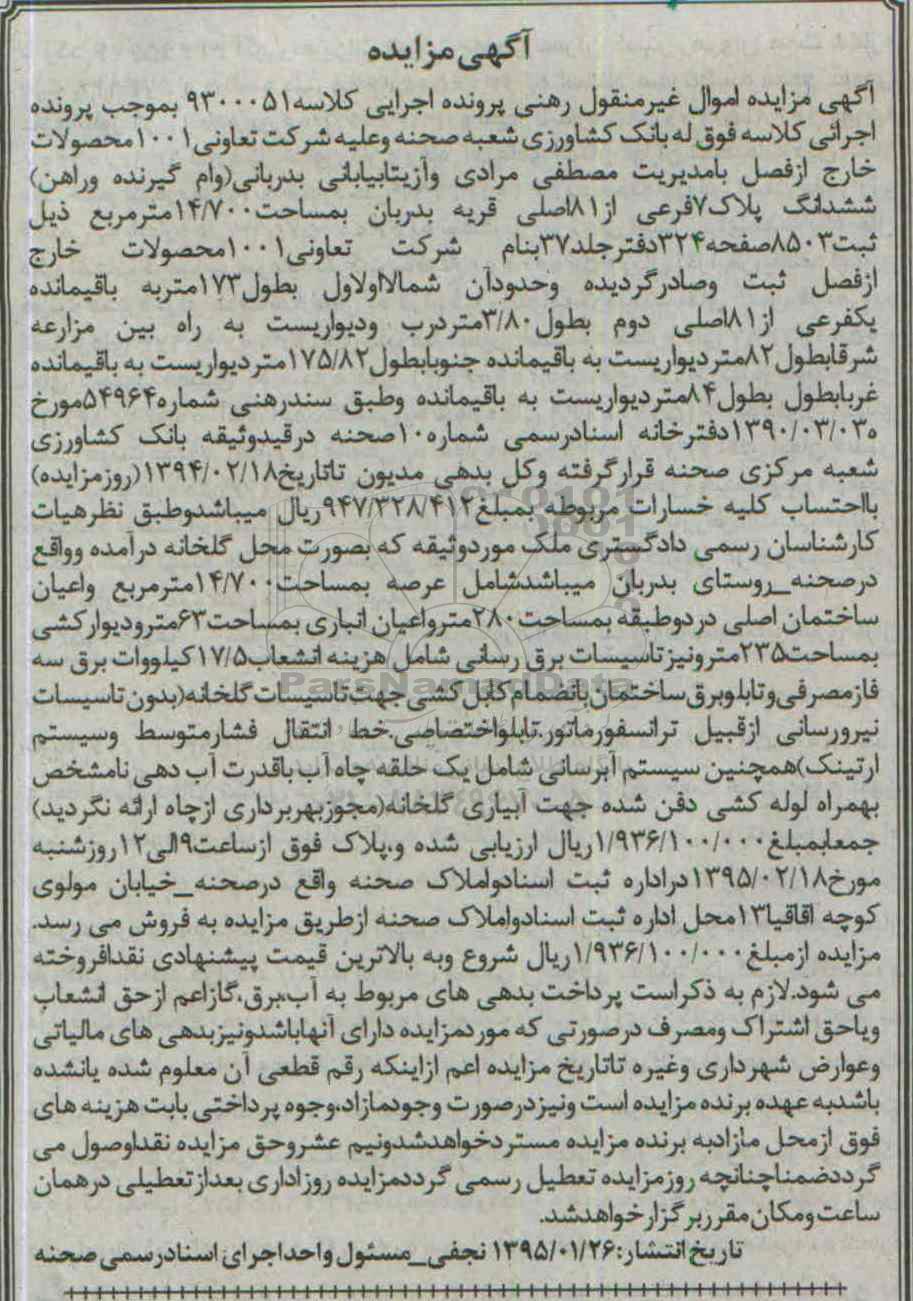 آگهی مزایده
آگهی مزایده اموال غیرمنقول رهنی پرونده اجرایی کلاسه۹۳۰۰۰۵۱ بموجب پرونده
اجرائی کلاسه فوق له بانک کشاورزی شعبه صحنه وعلیه شرکت تعاونی۱۰۰۱محصولات
خارج ازفصل بامدیریت مصطفی مرادی وآزیتابیابانی بدربانی(وام گیرنده وراهن)
ششدانگ پلاک۷فرعی از۸۱اصلی قریه بدربان بمساحت۱۴/۷۰۰مترمربع ذیل
ثبت۸۵۰۳صفحه۳۲۴دفترجلد۳۷بنام شرکت تعاونی۱۰۰۱محصولات خارج
ازفصل ثبت وصادرگردیده وحدودآن شمالااولاول بطول۱۷۳متربه باقیمانده
یکفرعی از۸۱اصلی دوم بطول۳/۸۰متردرب ودیواریست به راه بین مزارعه
شرقابطول۸۲متردیواریست به باقیمانده جنوبابطول۱۷۵/۸۲متردیواریست به باقیمانده
غربابطول بطول۸۴متردیواریست به باقیمانده وطبق سندرهنی شماره۵۴۹۶۴مورخ
۱۳۹۰/۰۳/۰۳دفترخانه اسنادرسمی شماره۱۰صحنه درقیدوثیقه بانک کشاورزی
شعبه مرکزی صحنه قرارگرفته وکل بدهی مدیون تاتاریخ۱۳۹۴/۰۲/۱۸(روزمزایده)
بااحتساب کلیه خسارات مربوطه بمبلغ۹۴۷/۳۲۸/۴۱۲ریال میباشدوطبق نظرهیات
کارشناسان رسمی دادگستری ملک موردوثیقه که بصورت محل گلخانه درآمده وواقع
درصحنه_روستای بدربان میباشدشامل عرصه بمساحت۱۴/۷۰۰مترمربع واعیان
ساختمان اصلی دردوطبقه بمساحت۲۸۰مترواعیان انباری بمساحت۶۳مترودیوارکشی
بمساحت۲۳۵مترونیزتاسیسات برق رسانی شامل هزینه انشعاب۱۷/۵کیلووات برق سه
فازمصرفی وتابلوبرق ساختمان بانضمام کابل کشی جهت تاسیسات گلخانه(بدون تاسیسات
نیرورسانی ازقبیل ترانسفورماتور.تابلواختصاصی.خط انتقال فشارمتوسط وسیستم
ارتینک)همچنین سیستم آبرسانی شامل یک حلقه چاه آب باقدرت آب دهی نامشخص
بهمراه لوله کشی دفن شده جهت آبیاری گلخانه(مجوزبهربرداری ازچاه ارائه نگردید)
جمعابمبلغ۱/۹۳۶/۱۰۰/۰۰۰ریال ارزیابی شده و،پلاک فوق ازساعت۹الی۱۲روزشنبه
مورخ۱۳۹۵/۰۲/۱۸دراداره ثبت اسنادواملاک صحنه واقع درصحنه_خیابان مولوی
کوچه اقاقیا۱۳محل اداره ثبت اسنادواملاک صحنه ازطریق مزایده به فروش می رسد.
مزایده ازمبلغ۱/۹۳۶/۱۰۰/۰۰۰ریال شروع وبه بالاترین قیمت پیشنهادی نقدافروخته
می شود.لازم به ذکراست پرداخت بدهی های مربوط به آب،برق،گازاعم ازحق انشعاب
ویاحق اشتراک ومصرف درصورتی که موردمزایده دارای آنهاباشدونیزبدهی های مالیاتی
وعوارض شهرداری وغیره تاتاریخ مزایده اعم ازاینکه رقم قطعی آن معلوم شده یانشده
باشدبه عهده برنده مزایده است ونیزدرصورت وجودمازاد،وجوه پرداختی بابت هزینه های
فوق ازمحل مازادبه برنده مزایده مستردخواهدشدونیم عشروحق مزایده نقداوصول می
گرددضمناچنانچه روزمزایده تعطیل رسمی گرددمزایده روزاداری بعدازتعطیلی درهمان
ساعت ومکان مقرربرگزارخواهدشد.
تاریخ انتشار:۱۳۹۵/۰۱/۲۶ نجفی_مسئول واحداجرای اسنادرسمی صحنه
ParsNamadData